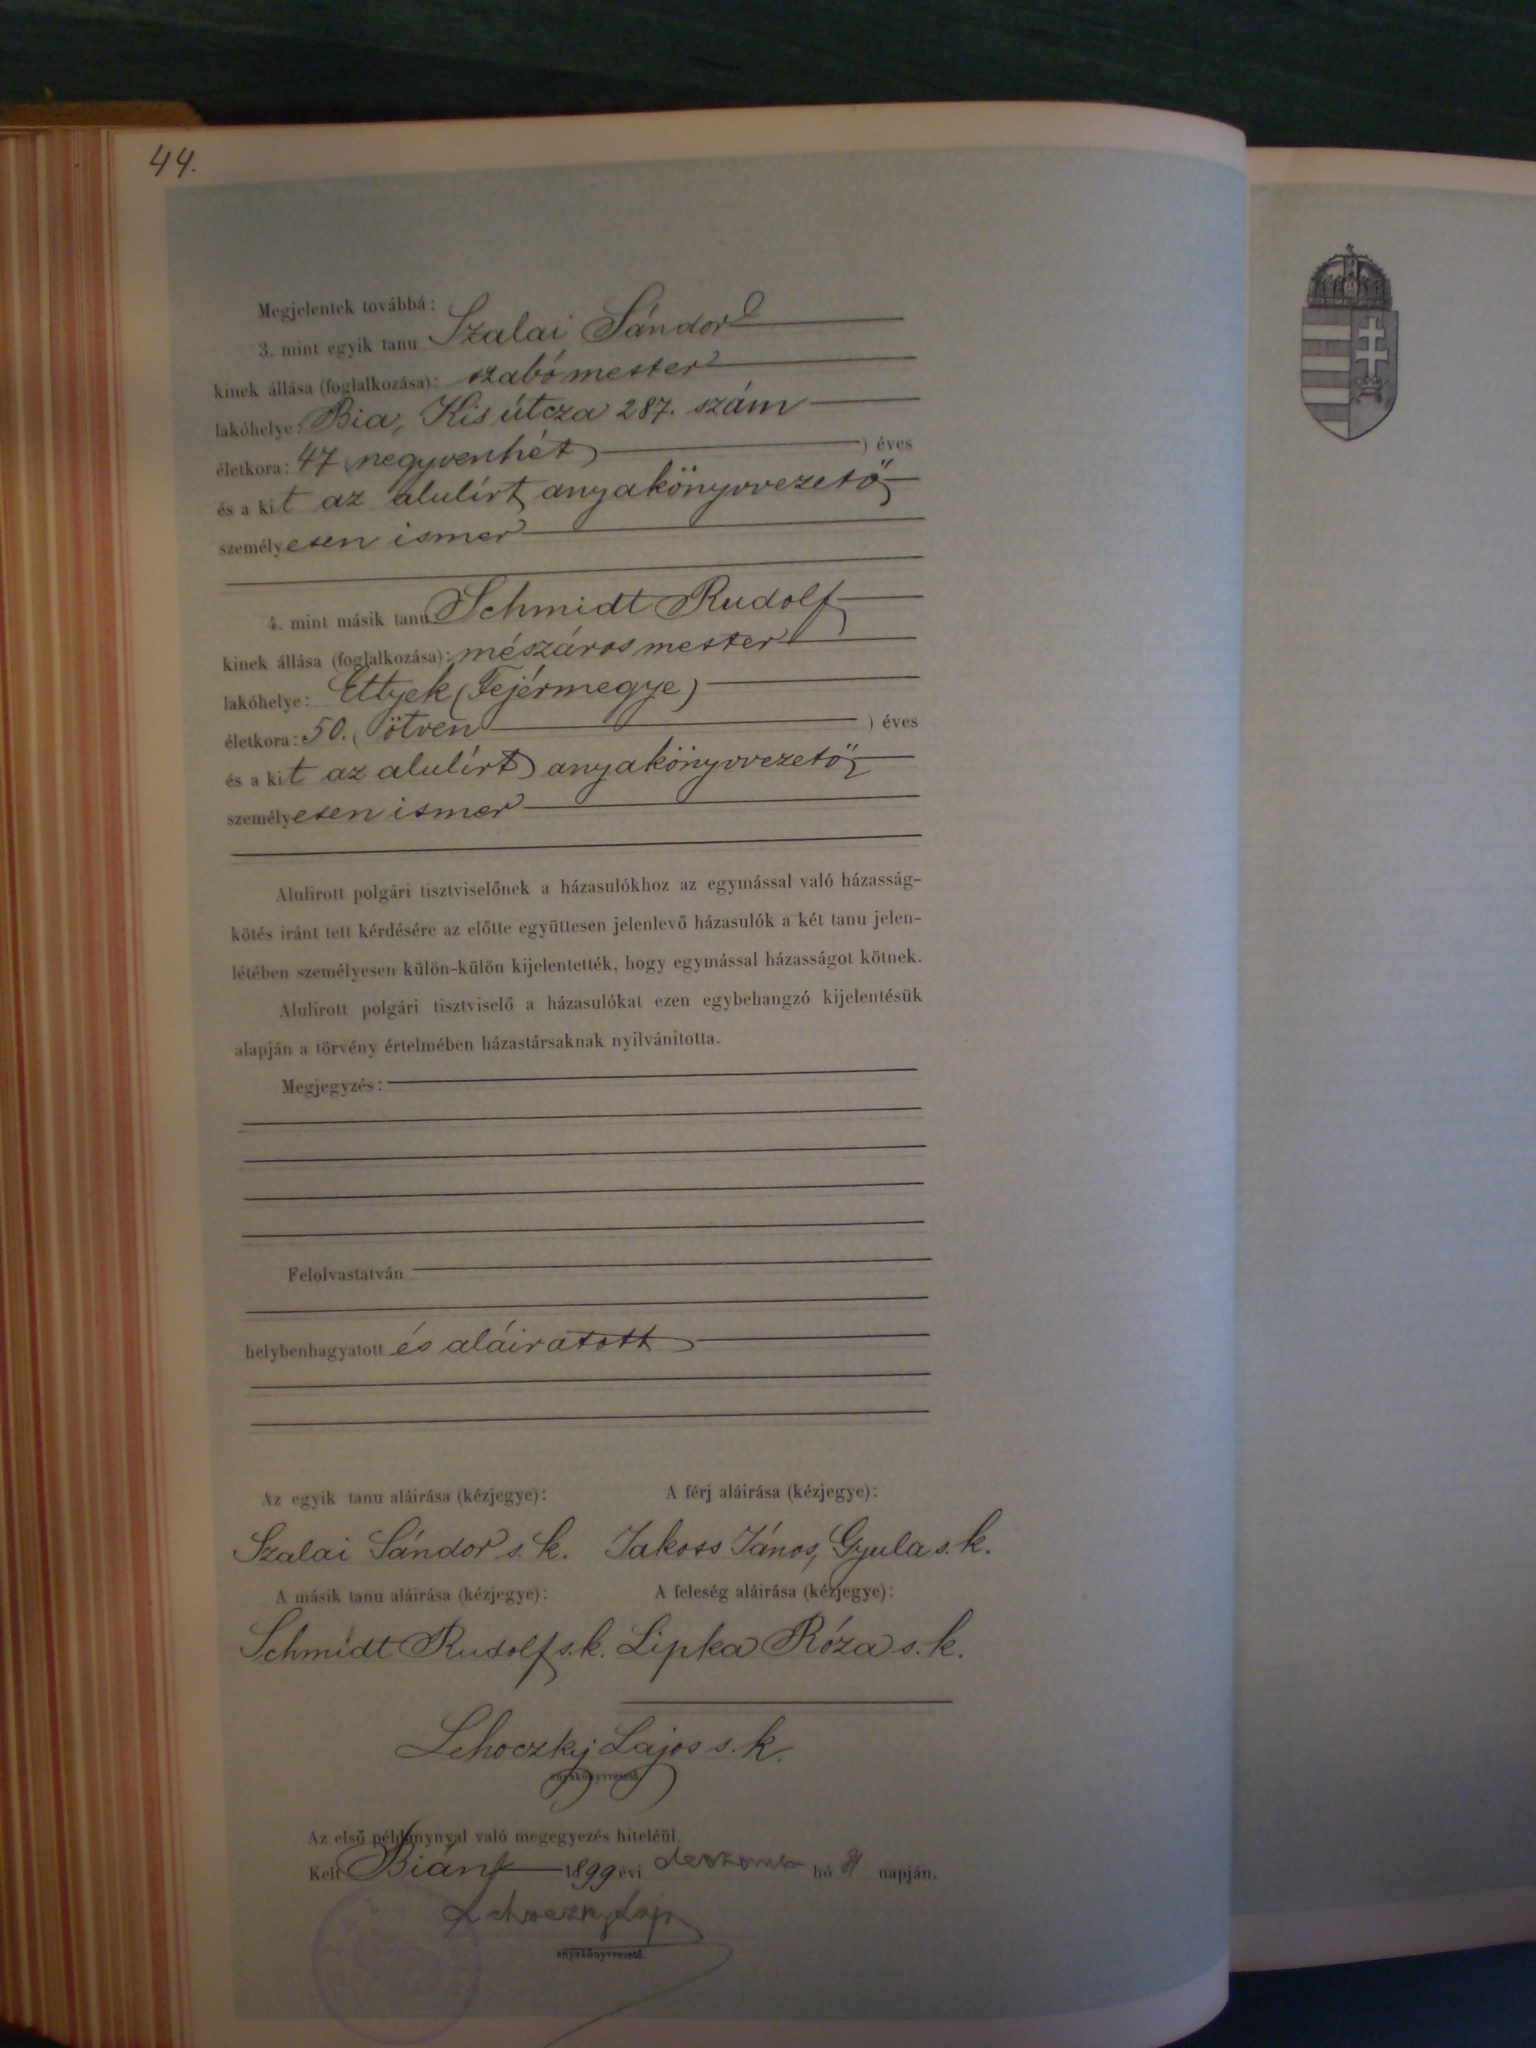 44.
Megjelentek továbbá:
3. mint egyik tanu Szalai Sándor
kinek állása (foglalkozása): szabómester
lakóhelye: Bia, Kis útcza 287. szám
életkora: 47 (negyvenhét) éves
és a kit az alulírt anyakönyvvezető
személyesen ismer
4. mint másik tanu Schmidt Rudolf
kinek állása (foglalkozása): mészáros mester
lakóhelye: Ettyek (Fejérmegye)
életkora: 50. (ötven) éves
és a kit az alulírt anyakönyvvezető
személyesen ismer
Alulirott polgári tisztviselőnek a házasulókhoz az egymással való házasság-
kötés iránt tett kérdésére az előtte együttesen jelenlevő házasulók a két tanu jelen-
létében személyesen külön-külön kijelentették, hogy egymással házasságot kötnek.
Alulirott polgári tisztviselő a házasulókat ezen egybehangzó kijelentésük
alapján a törvény értelmében házastársaknak nyilvánitotta.
Megjegyzés:
Felolvastatván
helybenhagyatott és aláiratott
Az egyik tanu aláirása (kézjegye): A férj aláirása (kézjegye):
Szalai Sándor s. k. Jakoss János, Gyula s. k.
A másik tanu aláirása (kézjegye): A feleség aláirása (kézjegye):
Schmidt Rudolf s. k. Lipka Róza s. k.
Lehoczkj Lajos s. k.
anyakönyvvezető.
Az első példánynyal való megegyezés hiteléül.
Kelt Bián 1899 évi deczember hó 31 napján.
Lehoczky Lajos
anyakönyvvezető.